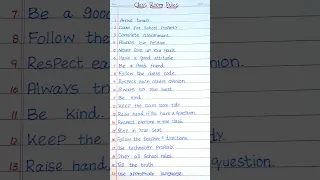 Class Room Rules
1. Arrive
2. Care for school property.
3. Complete assignment.
4. Always be positive.
5. Never give up your goals
6. Have a good attitude.
7. Be a good friend.
8. Follow the dress code.
9. Respect each others opinion.
10. Always try your best.
11. Be kind.
12. Keep the class room tidy.
13. Raise hand, if you have a question.
14. Respect everyone in the class.
15. Stay in your seat.
16. Follow the teacher's directions.
17. Use technology properly.
18. Obey all school rules.
19. Tell the truth.
20. Use appropriate language.
7. Be a good
8. Follow the
9. Respect ea
10. Always tr
11. Be Kind.
12. Keep the
13. Raise hand,
code.
opinion.
tidy.
question.